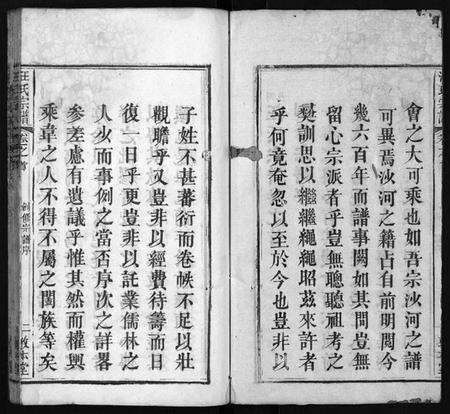 會之大可乘也如吾宗沙河之譜
可異焉沙河之籍占自前明閱今
幾六百年而譜事闕如其間豈無
留心宗派者乎豈無聰聽祖考之
彝訓思以繼繼繩繩昭茲來許者
乎何竟奄忽以至於今也豈非以
子姓不甚蕃衍而卷帙不足以壯
觀瞻乎又豈非以經費待籌而日
復一日乎更豈非以託業儒林之
人少而事例之當否序次之詳畧
參差慮有遺議乎惟其然而權輿
乘韋之人不得不屬之閩族等矣
汪氏宗譜
卷之首
二
敦本堂